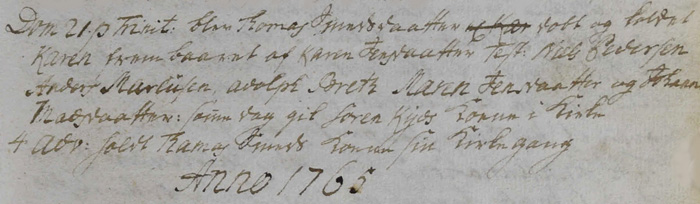 Dom 21. p Trinit: blev Thomas Smedsdaatter døbt og kaldet
Karen frembaaret af Karen Jensdaatter Test: Niels Pedersen
Anders Marcusen, adolph Breth Maren Jensdaatter og Johanne
Madsdaatter: samme dag gik Søren Kyds Konne i Kirke
4 Adv: holdt Thomas Smeds Konne sin Kirkegang
Anno 1765